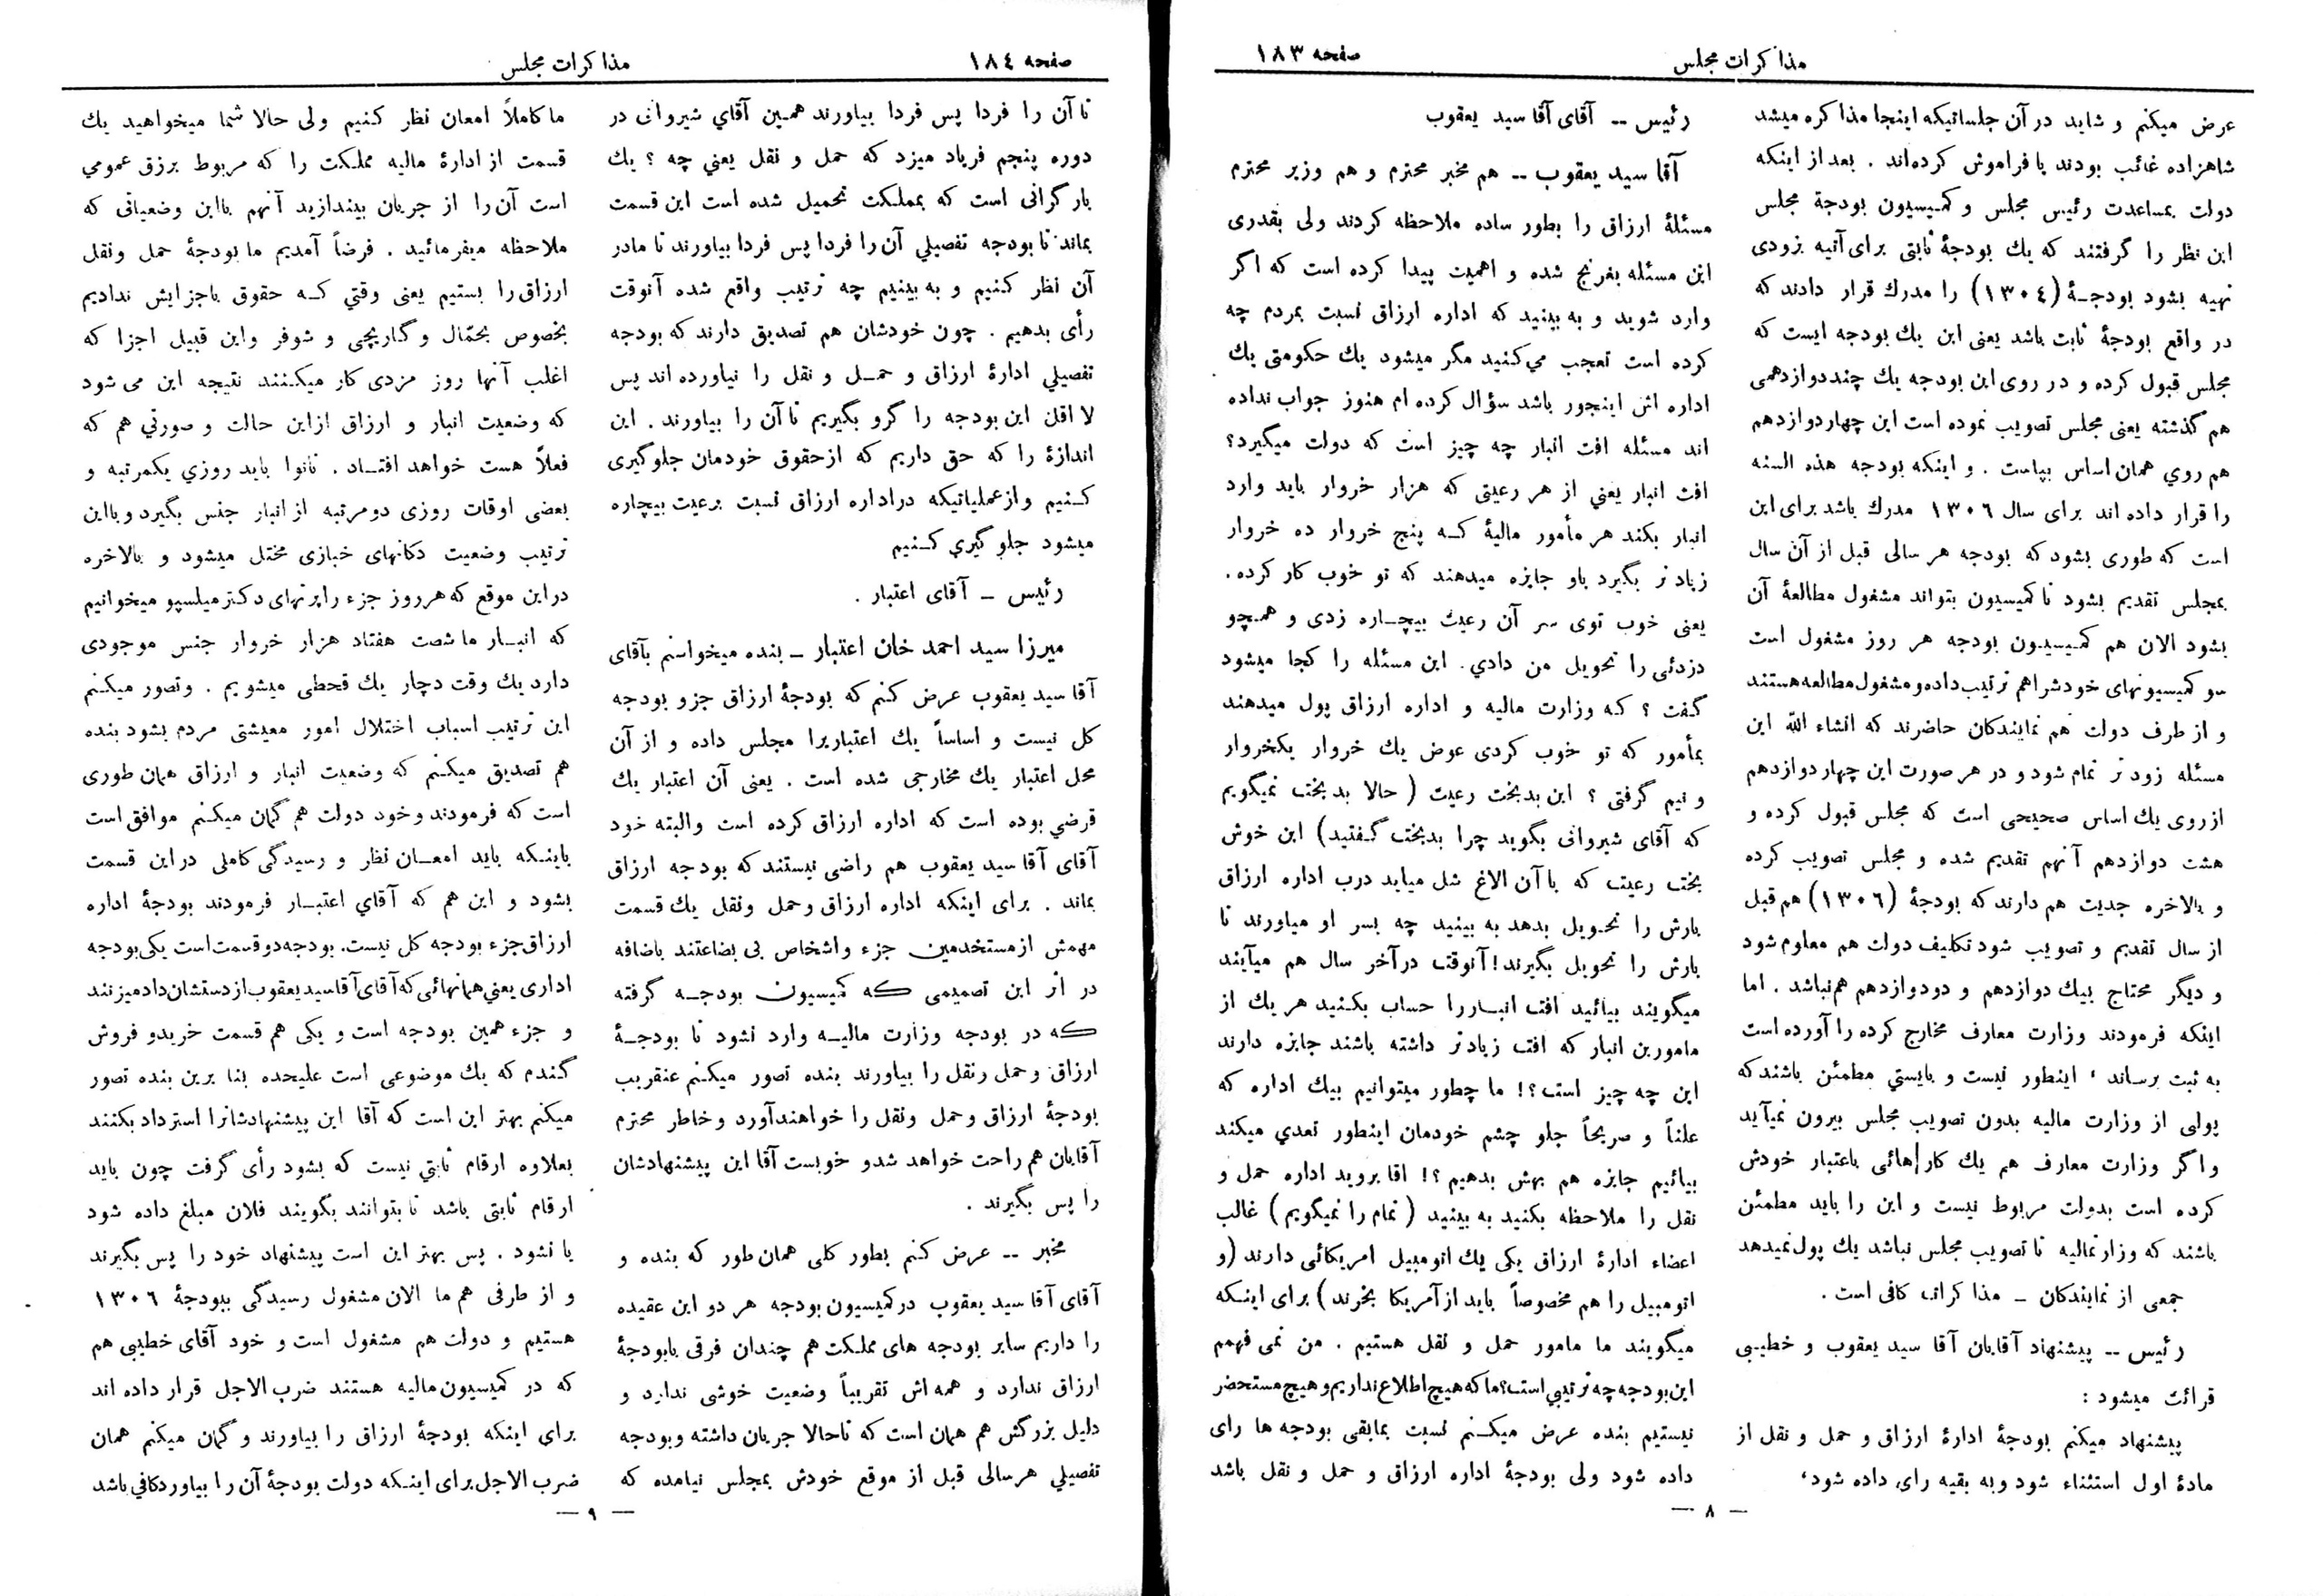 مذاکرات مجلس
صفحه ۱۸۳
عرض میکنم و شاید در آن جلساتیکه اینجا مذاکره میشد
شاهزاده غائب بودند یا فراموش کرده‌اند . بعد از اینکه
دولت بمساعدت رئیس مجلس و کمیسیون بودجهٔ مجلس
این نظر را گرفتند که یك بودجهٔ ثابتی برای آتیه بزودی
تهیه بشود بودجـهٔ (۱۳۰٤) را مدرك قرار دادند که
در واقع بودجهٔ ثابت باشد یعنی این یك بودجه ایست که
مجلس قبول کرده و در روی این بودجه یك چند دوازدهمی
هم گذشته یعنی مجلس تصویب نموده است این چهار دوازدهم
هم روي همان اساس بپاست . و اینکه بودجه هذه السنه
را قرار داده اند برای سال ۱۳۰٦ مدرك باشد برای این
است که طوری بشود که بودجه هر سالی قبل از آن سال
بمجلس تقدیم بشود تا کمیسیون بتواند مشغول مطالعهٔ آن
بشود الان هم کمیسیون بودجه هر روز مشغول است
سو کمیسیونهای خودشرا هم ترتیب داده و مشغول مطالعه هستند
و از طرف دولت هم نمایندکان حاضرند که انشاء الله این
مسئله زود تر تمام شود و در هر صورت این چهار دوازدهم
ازروی یك اساس صحیحی است که مجلس قبول کرده و
هشت دوازدهم آنهم تقدیم شده و مجلس تصویب کرده
و بالاخره جدیت هم دارند که بودجهٔ (۱۳۰٦) هم قبل
از سال تقدیم و تصویب شود تکلیف دولت هم معلوم شود
و دیگر محتاج بیك دوازدهم و دو دوازدهم هم نباشد . اما
اینکه فرمودند وزارت معارف مخارج کرده را آورده است
به ثبت برساند ، اینطور نیست و بایستي مطمئن باشند که
پولی از وزارت مالیه بدون تصویب مجلس بیرون نمیآید
و اگر وزارت معارف هم یك کارهائی باعتبار خودش
کرده است بدولت مربوط نیست و این را باید مطمئن
باشند که وزارتمالیه تا تصویب مجلس نباشد یك پول نمیدهد
جمعی از نمایندکان ـ مذاکرات کافی است .
رئیس -- پیشنهاد آقایان آقا سید یعقوب و خطیبی
قرائت میشود :
پیشنهاد میکنم بودجهٔ ادارهٔ ارزاق و حمل و نقل از
مادهٔ اول استثناء شود و به بقیه رای داده شود،
رئیس -- آقای آقا سید یعقوب
آقا سید یعقوب -- هم مخبر محترم و هم وزیر محترم
مسئلهٔ ارزاق را بطور ساده ملاحظه کردند ولی بقدری
این مسئله بغرنج شده و اهمیت پیدا کرده است که اگر
وارد شوید و به بینید که اداره ارزاق نسبت بمردم چه
کرده است تعجب می‌کنید مگر میشود یك حکومتی یك
اداره اش اینجور باشد سؤال کرده‌ام هنوز جواب نداده
اند مسئله افت انبار چه چیز است که دولت میگیرد؟
افت انبار یعني از هر رعیتی که هزار خروار باید وارد
انبار بکند هر مأمور مالیهٔ کـه پنج خروار ده خروار
زیاد تر بگیرد باو جایزه میدهند که تو خوب کار کرده.
یعنی خوب توی سر آن رعیت بیچـاره زدی و همچو
دزدئی را تحویل من دادي. این مسئله را کجا میشود
گفت ؟ که وزارت مالیه و اداره ارزاق پول میدهند
بمأمور که تو خوب کردی عوض یك خروار یکخروار
و نیم گرفتی ؟ این بدبخت رعیت ( حالا بدبخت نمیگویم
که آقای شیروانی بگوید چرا بدبخت گـفتید) این خوش
بخت رعیت که با آن الاغ شل میاید درب اداره ارزاق
بارش را تحـویل بدهد به بینید چه بسر او میاورند تا
بارش را تحویل بگیرند! آنوقت در آخر سال هم میآیند
میگویند بیائید افت انبـاررا حساب بکـنید هر یك از
مامورین انبار که افت زیادتر داشته باشند جایزه دارند
این چه چیز است؟! ما چطور میتوانیم بیك اداره که
علناً و صریحاً جلو چشم خودمان اینطور تعدي میکند
بیائیم جایزه هم بهش بدهیم ؟! اقا بروید اداره حمل و
نقل را ملاحظه بکنید به بینید ( تمام را نمیگویم ) غالب
اعضاء ادارهٔ ارزاق یکی یك اتومبیل امریکائی دارند (و
اتومبیل را هم مخصوصاً باید از آمریکا بخرند) برای اینـکه
میگویند ما مامور حمل و نقل هستیم . من نمی فهمم
این بودجه چه ترتیبي است؟ ما که هیچ اطلاع نداریم و هیچ مستحضر
نیستیم بنده عرض میکـنم نسبت بمابقی بودجه ها رای
داده شود ولی بودجهٔ اداره ارزاق و حمل و نقل باشد
— ۸ —
صفحه ۱۸٤
مذاکرات مجلس
تا آن را فردا پس فردا بیاورند همـین آقاي شیروانی در
دوره پنجم فریاد میزد که حمل و نقل یعني چه ؟ یك
بار گرانی است که بمملکت تحمیل شده است این قسمت
بماند تا بودجه تفصیلي آن را فردا پس فردا بیاورند تا مادر
آن نظر کنیم و به بینیم چه ترتیب واقع شده آنوقت
رأی بدهیم . چون خودشان هم تصدیق دارند که بودجه
تفصیلي ادارهٔ ارزاق و حمـل و نقل را نیاورده اند پس
لا اقل این بودجه را گرو بگیریم تا آن را بیاورند . این
اندازهٔ را که حق داریم که از حقوق خودمان جلوگیری
کـنیم و از عملیاتیکه در اداره ارزاق نسبت برعیت بیچاره
میشود جلو گیري کـنیم
رئیس ـ آقای اعتبار .
میرزا سید احمد خان اعتبار ـ بنده میخواستم بآقای
آقا سید یعقوب عرض کنم که بودجهٔ ارزاق جزو بودجه
کل نیست و اساساً یك اعتباریرا مجلس داده و از آن
محل اعتبار یك مخارجی شده است . یعنی آن اعتبار یك
قرضي بوده است که اداره ارزاق کرده است والبته خود
آقای آقا سید یعقوب هم راضی نیستند که بودجه ارزاق
بماند . برای اینکه اداره ارزاق و حمل و نقل یك قسمت
مهمش از مستخدمین جزء و اشخاص بی بضاعتند باضافه
در اثر این تصمیمی که کمیسیون بودجـه گرفته
که در بودجه وزارت مالیـه وارد نشود تا بودجـهٔ
ارزاق و حمل و نقل را بیاورند بنده تصور میکـنم عنقریب
بودجهٔ ارزاق و حمل ونقل را خواهند آورد و خاطر محترم
آقایان هم راحت خواهد شد و خوبست آقا این پیشنهادشان
را پس بگیرند .
مخبر -- عرض کنم بطور کلی همان طور که بنده و
آقای آقا سید یعقوب در کمیسیون بودجه هر دو این عقیده
را داریم سایر بودجه های مملکت هم چندان فرقی با بودجهٔ
ارزاق ندارد و همه‌اش تقریباً وضعیت خوشی ندارد و
دلیل بزرگش هم همان است که تا حالا جریان داشته و بودجه
تفصیلي هر سالی قبل از موقع خودش بمجلس نیامده که
ما کاملاً امعان نظر کـنیم ولی حالا شما میخواهید یك
قسمت از ادارهٔ مالیه مملکت را که مربوط برزق عمومي
است آن را از جریان بیندازید آنهم با این وضعیاتی که
ملاحظه میفرمائید . فرضاً آمدیم ما بودجهٔ حمل ونقل
ارزاق را بستیم یعنی وقتي کـه حقوق باجزایش ندادیم
بخصوص بحمّال و گاریچی و شوفر واین قبیل اجزا که
اغلب آنها روز مزدی کار میکـنند نتیجه این می شود
که وضعیت انبار و ارزاق از این حالت و صورتي هم که
فعلاً هست خواهد افتـاد . نانوا باید روزي یکمرتبه و
بعضی اوقات روزی دو مرتبه از انبار جنس بگیرد و با این
ترتیب وضعیت دکانهای خبازی مختل میشود و بالاخره
در این موقع که هر روز جزء راپرتهای دکتر میلسپو میخوانیم
که انبـار ما شصت هفتاد هزار خروار جنس موجودی
دارد یك وقت دچار یك قحطی میشویم . و تصور میکـنم
این ترتیب اسباب اختلال امور معیشتی مردم بشود بنده
هم تصدیق میکـنم که وضعیت انبار و ارزاق همان طوری
است که فرمودند و خود دولت هم گمان میکـنم موافق است
باینـکه باید امعـان نظر و رسیدگی کاملی در این قسمت
بشود و این هم که آقاي اعتبـار فرمودند بودجهٔ اداره
ارزاق جزء بودجه کل نیست. بودجه دو قسمت است یکی بودجه
اداری یعني همانهائی که آقای آقا سید یعقوب از دستشان داد میزنند
و جزء همین بودجه است و یکی هم قسمت خرید و فروش
گـندم که یك موضوعی است علیحده بنا برین بنده تصور
میکنم بهتر این است که آقا این پیشنهادشانرا استرداد بکنند
بعلاوه ارقام ثابتي نیست که بشود رأی گرفت چون باید
ارقام ثابتی باشد تا بتوانند بگویند فلان مبلغ داده شود
یا نشود . پس بهتر این است پیشنهاد خود را پس بگیرند
و از طرفی هم ما الان مشغول رسیدگی ببودجهٔ ۱۳۰٦
هستیم و دولت هم مشغول است و خود آقای خطیبی هم
که در کمیسیون مالیه هستند ضرب الاجل قرار داده اند
برای اینکه بودجهٔ ارزاق را بیاورند و گمان میکنم همان
ضرب الاجل برای اینـکه دولت بودجهٔ آن را بیاورد کافي باشد
— ۹ —